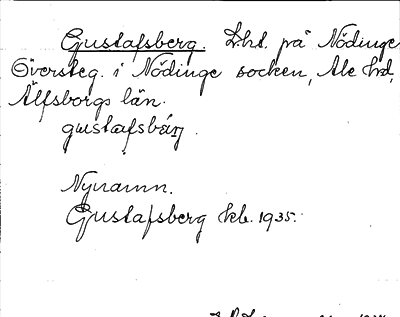 Gustafsberg. Lht. på Nödinge
Översteg. i Nödinge socken, Ale hd,
Älfsborgs län.
gustafsbärj.
Nynamn.
Gustafsberg kb. 1935.